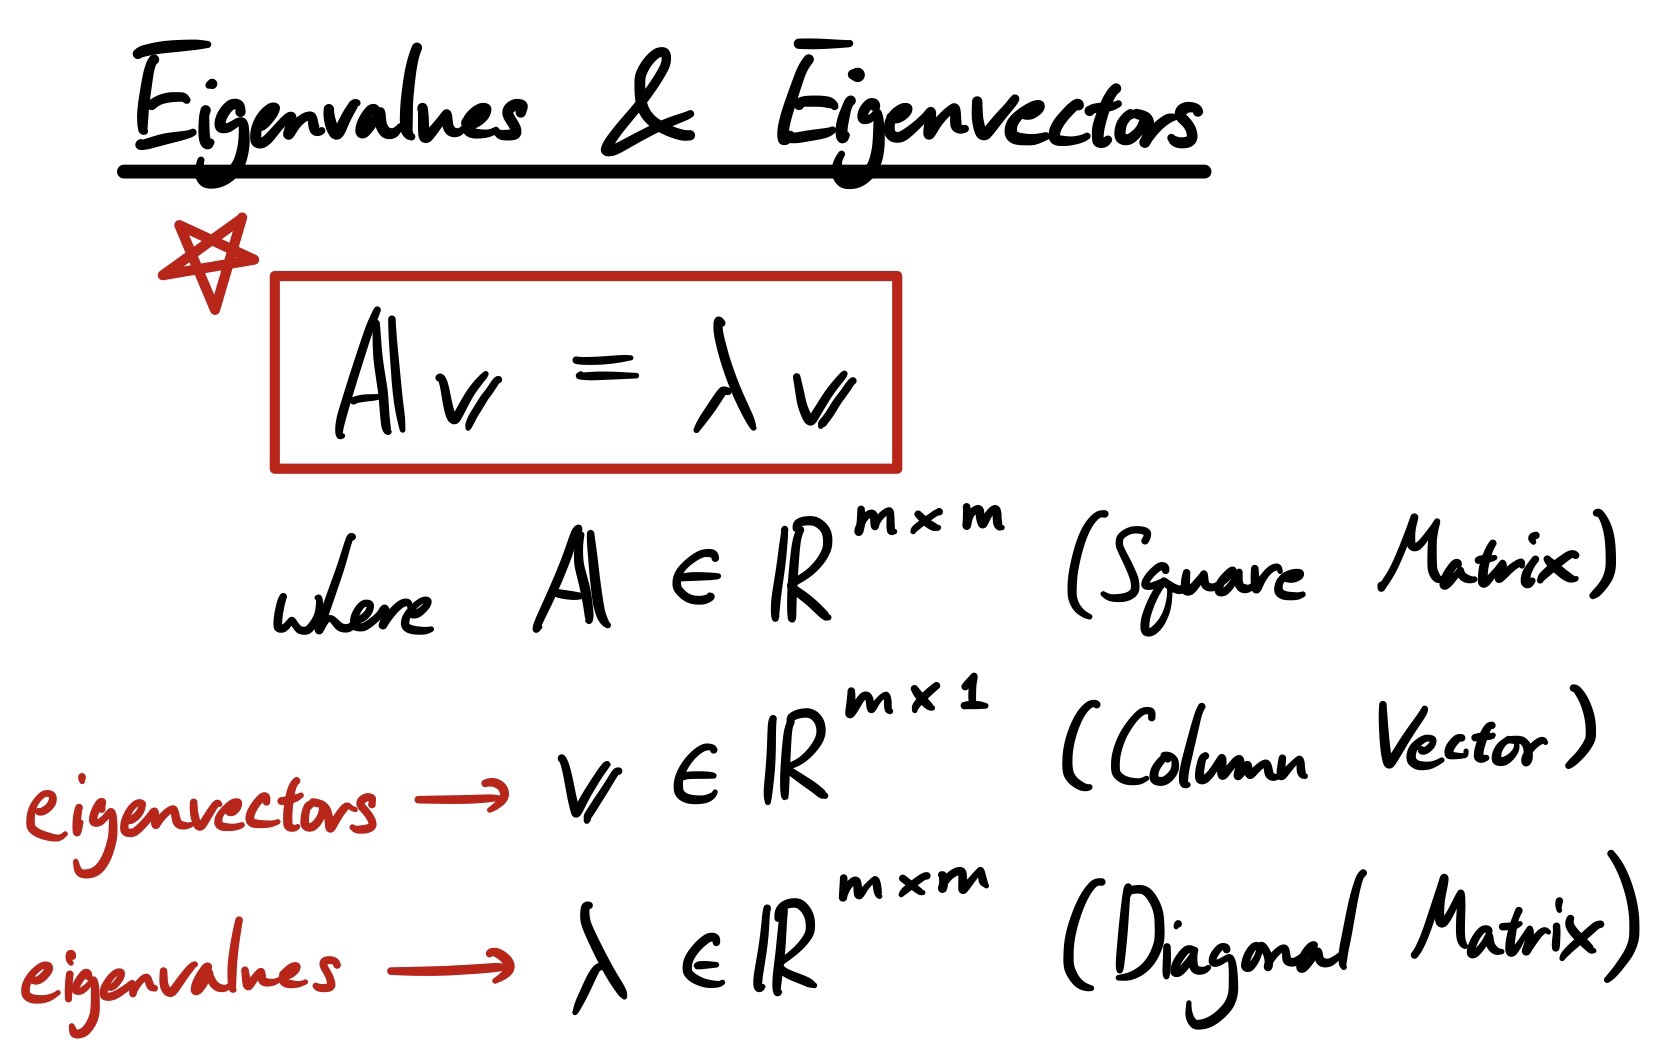 Eigenvalues & Eigenvectors
𝔸𝕧 = λ𝕧
where 𝔸 ∈ ℝ^{m×m} (Square Matrix)
eigenvectors → 𝕧 ∈ ℝ^{m×1} (Column Vector)
eigenvalues → λ ∈ ℝ^{m×m} (Diagonal Matrix)